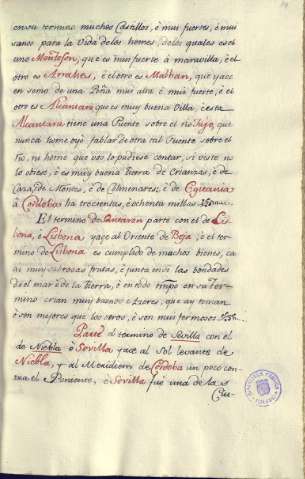 en su termino muchos Castillos, è mui fuertes, è mui
sanos para la Vida de los homes, de los quales es el
uno Montesen, que es mui fuerte à maravilla, è el
otro es Arrahes, è el otro es Mashan, que yace
en somo de una Peña mui alta è mui fuerte, è el
otro es Alcantara que es mui buena Villa, è esta
Alcantara tiene una Puente sobre el rio Tajo, que
nunca home oyò fablar de otra tal Puente sobre el
rio, ni home que vos lo pudiese contar, si veste no
lo obiese, è es mui buena tierra de Crianzas, è de
Caza, de Montes, è de Colmenares, è de Egitania
à Cordoba ha trecientas, è ochenta millas
El termino de Santaren parte con el de Lis-
bona, è Lisbona yace al Oriente de Beja, è el ter-
mino de Lisbona es cumplido de muchos bienes, ca
ai mui sabrosas frutas, è junta en si las bondades
de el mar è de la tierra, è en todo tiempo en su Ter-
mino crian mui buenos Azores, que ay toman
è son mejores que los otros, è son mui fermosos
Parte el termino de Sevilla con el
de Niebla è Sevilla yace al sol levante de
Niebla, y al Meridiem de Cordoba un poco con-
tra el Poniente, è Sevilla fuè una de las
Ciu-